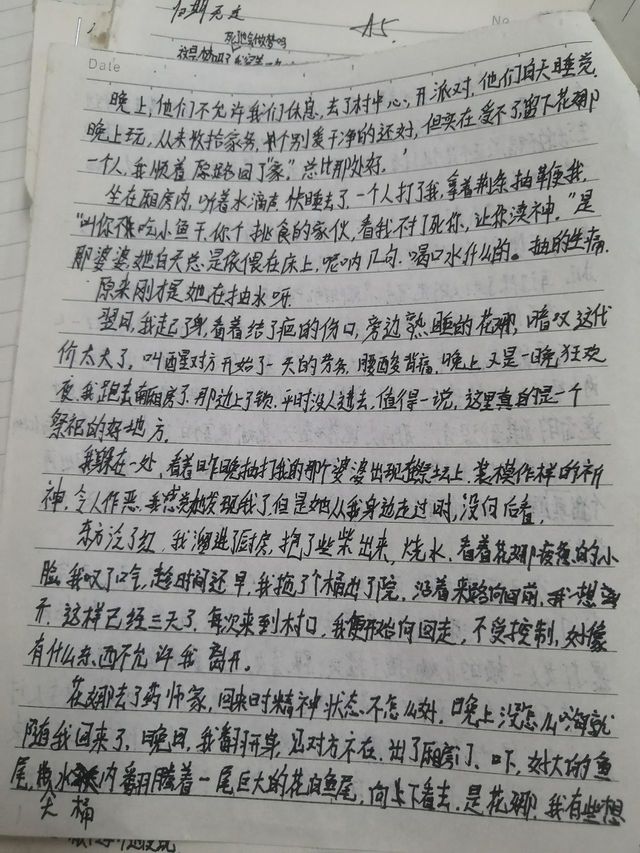 归期无定
A5
No
死地会做梦吗
Date
晚上,他们不允许我们休息,去了村中心,开派对,他们白天睡觉
晚上玩,从未收拾家务,个别爱干净的还好,但实在受不了,留下花娜
一个人,我顺着原路回了"家",总比那处好。
坐在厢房内,听着水滴声,快睡去了,一个人打了我,拿着荆条抽鞭我,
"叫你不吃小鱼干,你个挑食的家伙,看我不打死你,让你渎神。"是
那婆婆她白天总是依偎在床上,呢呐几句,喝口水什么的。抽的生痛,
原来刚才是她在抽水呀
翌日,我起了身,看着结了痂的伤口,旁边熟睡的花娜,暗叹这代
价太大了,叫醒对方开始了一天的劳务,腰酸背痛,晚上又是一晚狂欢
夜,我跑去南厢房了,那边上了锁,平时没人进去,值得一说,这里真的是一个
祭祀的好地方。
我躲在一处,看着昨晚抽打我的那个婆婆出现在祭坛上,装模作样的祈
神,令人作恶,我感觉她发现我了,但是她从我身边走过时,没向后看,
东方泛了红,我溜进了厨房,抱了些柴出来,烧水,看着花娜疲惫的小
脸,我叹了口气,趁时间还早,我拖了个桶出了院,沿着来路向回前,我想离
开,这样已经三天了,每次来到村口,我便开始向回走,不受控制,好像
有什么东西不允许我离开。
花娜去了药师家,回来时精神状态不怎么好,晚上没怎么喝就
随我回来了,晚间,我翻开身,见对方不在,出了厢房门,吓,好大的鱼
尾,大水桶内翻腾着一尾巨大的花白鱼尾,向上下看去,是花娜,我有些想